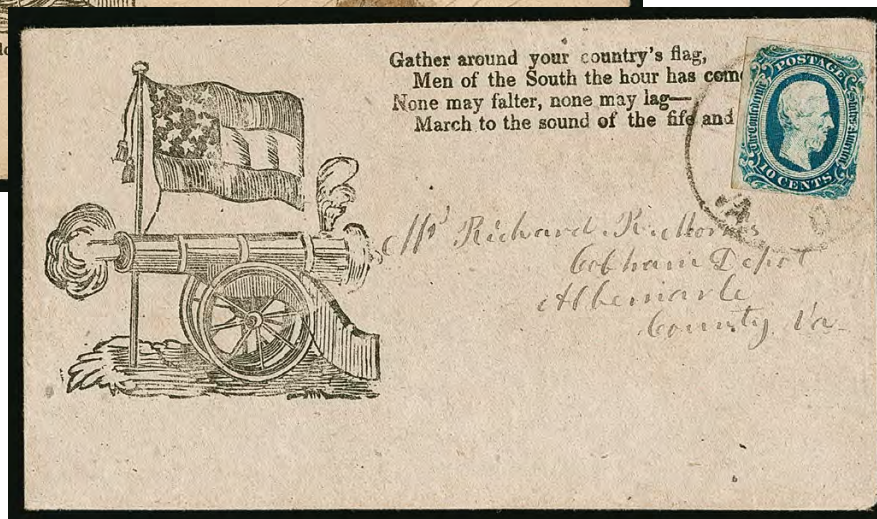 Gather around your country's flag,
Men of the South the hour has come
None may falter, none may lag—
March to the sound of the fife and
POSTAGE
The Confederate States of America
10 CENTS
Richard
Cobham Depot
Albemarle
County, Va